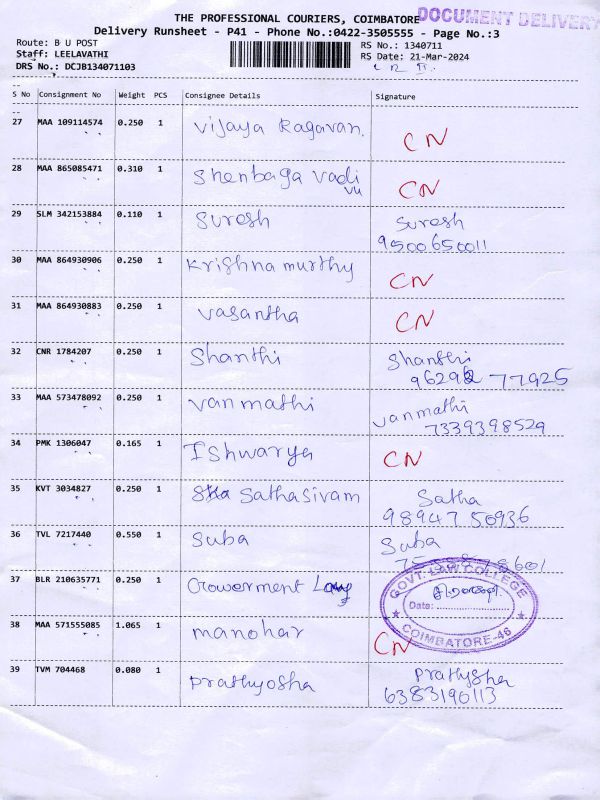 THE PROFESSIONAL COURIERS, COIMBATORE
DOCUMENT DELIVERY
Delivery Runsheet - P41 - Phone No.:0422-3505555 - Page No.:3
Route: B U POST
RS No.: 1340711
Staff: LEELAVATHI
RS Date: 21-Mar-2024
DRS No.: DCJB134071103
S No Consignment No Weight PCS Consignee Details Signature
27 MAA 109114574 0.250 1 Vijaya Ragavan. CN
28 MAA 865085471 0.310 1 Shenbaga Vadi
vu CN
29 SLM 342153884 0.110 1 Suresh Suresh
9500650011
30 MAA 864930906 0.250 1 Krishna murthy CN
31 MAA 864930883 0.250 1 Vasantha CN
32 CNR 1784207 0.250 1 Shanthi Shanthi
77925
33 MAA 573478092 0.250 1 Vanmathi Vanmathi
7339398529
34 PMK 1306047 0.165 1 Ishwarya CN
35 KVT 3034827 0.250 1 Sathasivam Satha
98947 50936
36 TVL 7217440 0.550 1 Suba Suba
37 BLR 210635771 0.250 1 Gowerment
GOVT. LAW COLLEGE
Date:
COIMBATORE-46
38 MAA 571555085 1.065 1 manohar CN
39 TVM 704468 0.080 1 Prathyosha Prathysha
6383190113